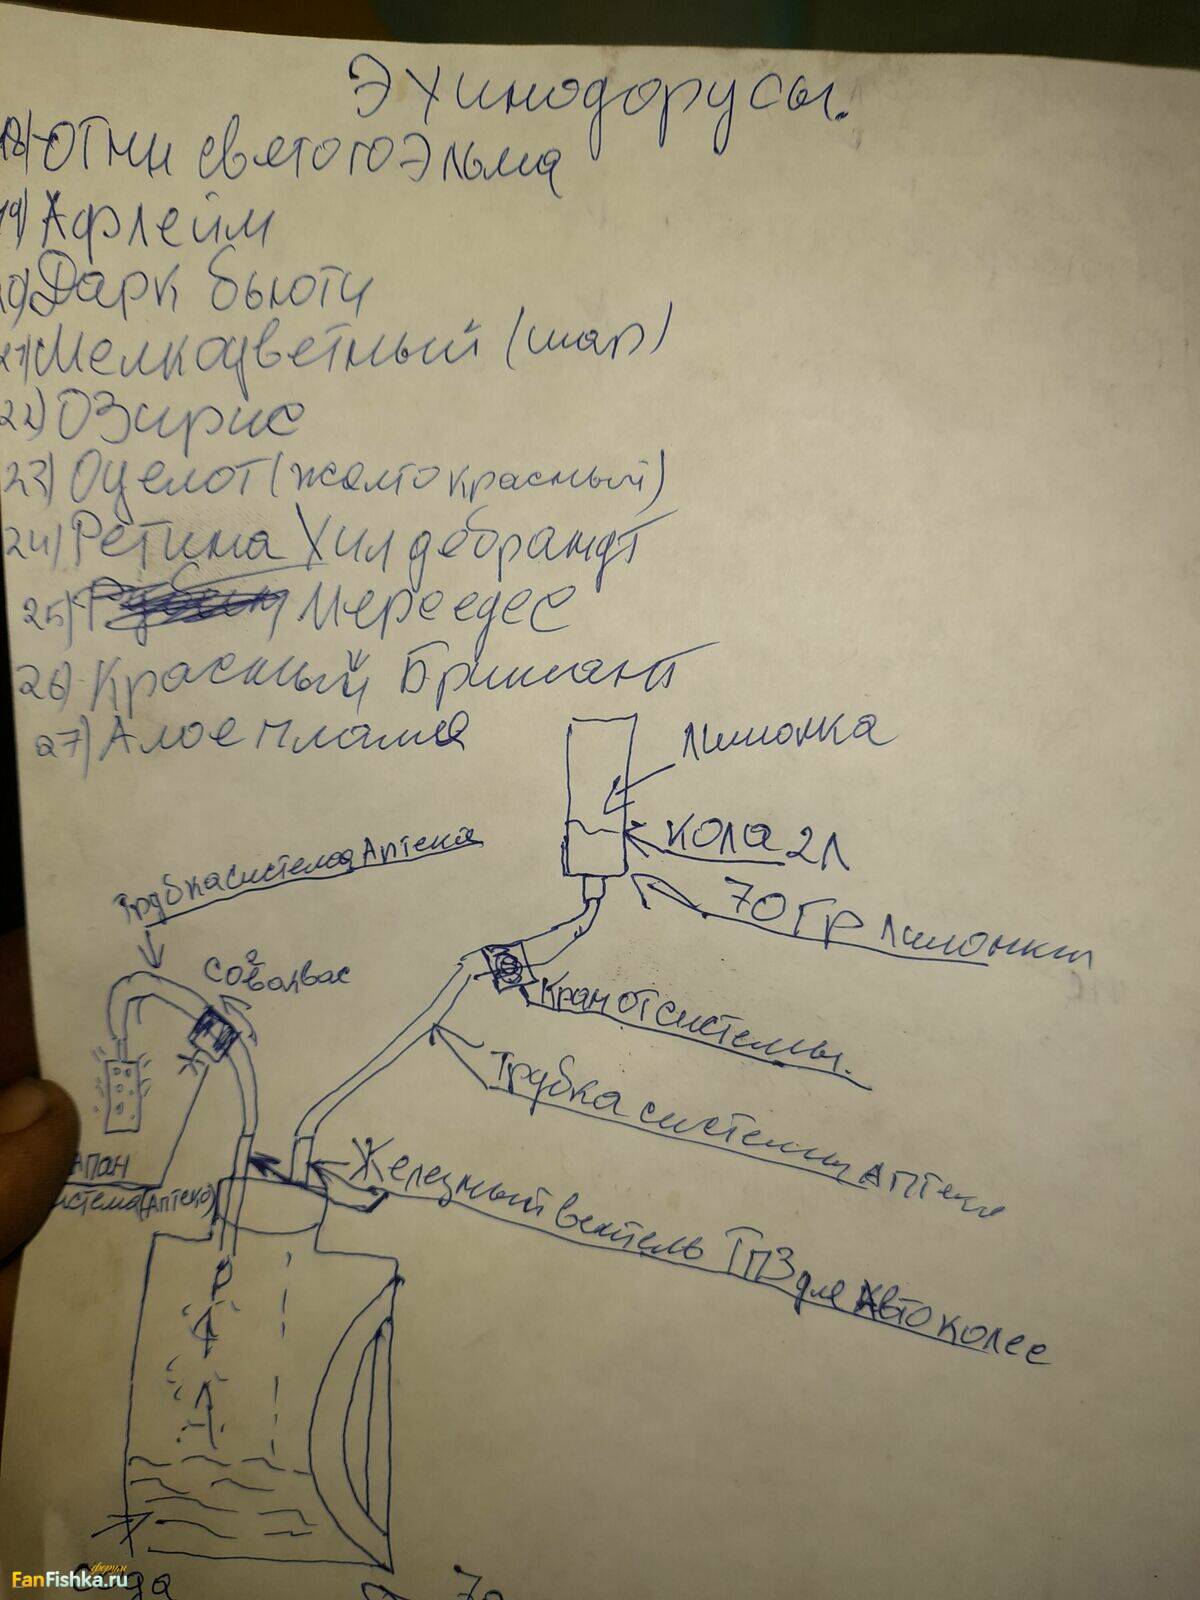 Эхинодорусы.
18) Огни святого Эльма
19) Афлейм
20) Дарк бьюти
21) Мелкоцветный (шар)
22) Озирис
23) Оцелот (желто красный)
24) Регина Хилдебрандт
25) Мерседес
26) Красный Брилиант
27) Алое пламя
Лимонка
Кола 2л
70 гр лимонки
Трубка система Аптека
CO2 в аквас
Кран от системы.
Трубка система Аптека
апан
истема (Аптека)
Железный вентель Газ для Авто колес
Сода
70
форум
FanFishka.ru